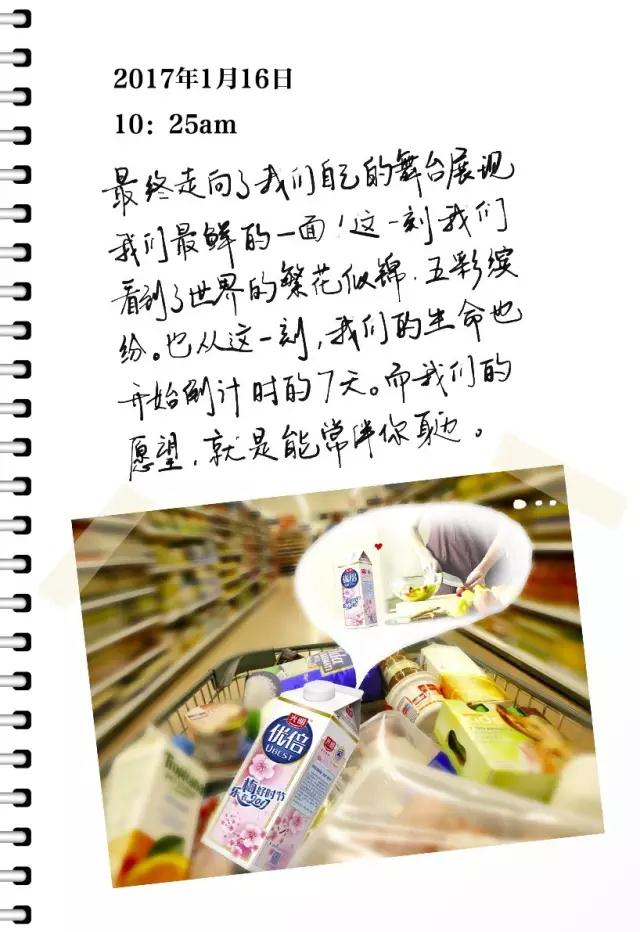 2017年1月16日
10：25am
最终走向了我们自己的舞台展现
我们最鲜的一面！这一刻我们
看到了世界的繁花似锦.五彩缤
纷。也从这一刻,我们的生命也
开始倒计时的7天。而我们的
愿望,就是能常伴你身边。
优倍
光明
优倍
UBEST
梅好时节
乐在2017